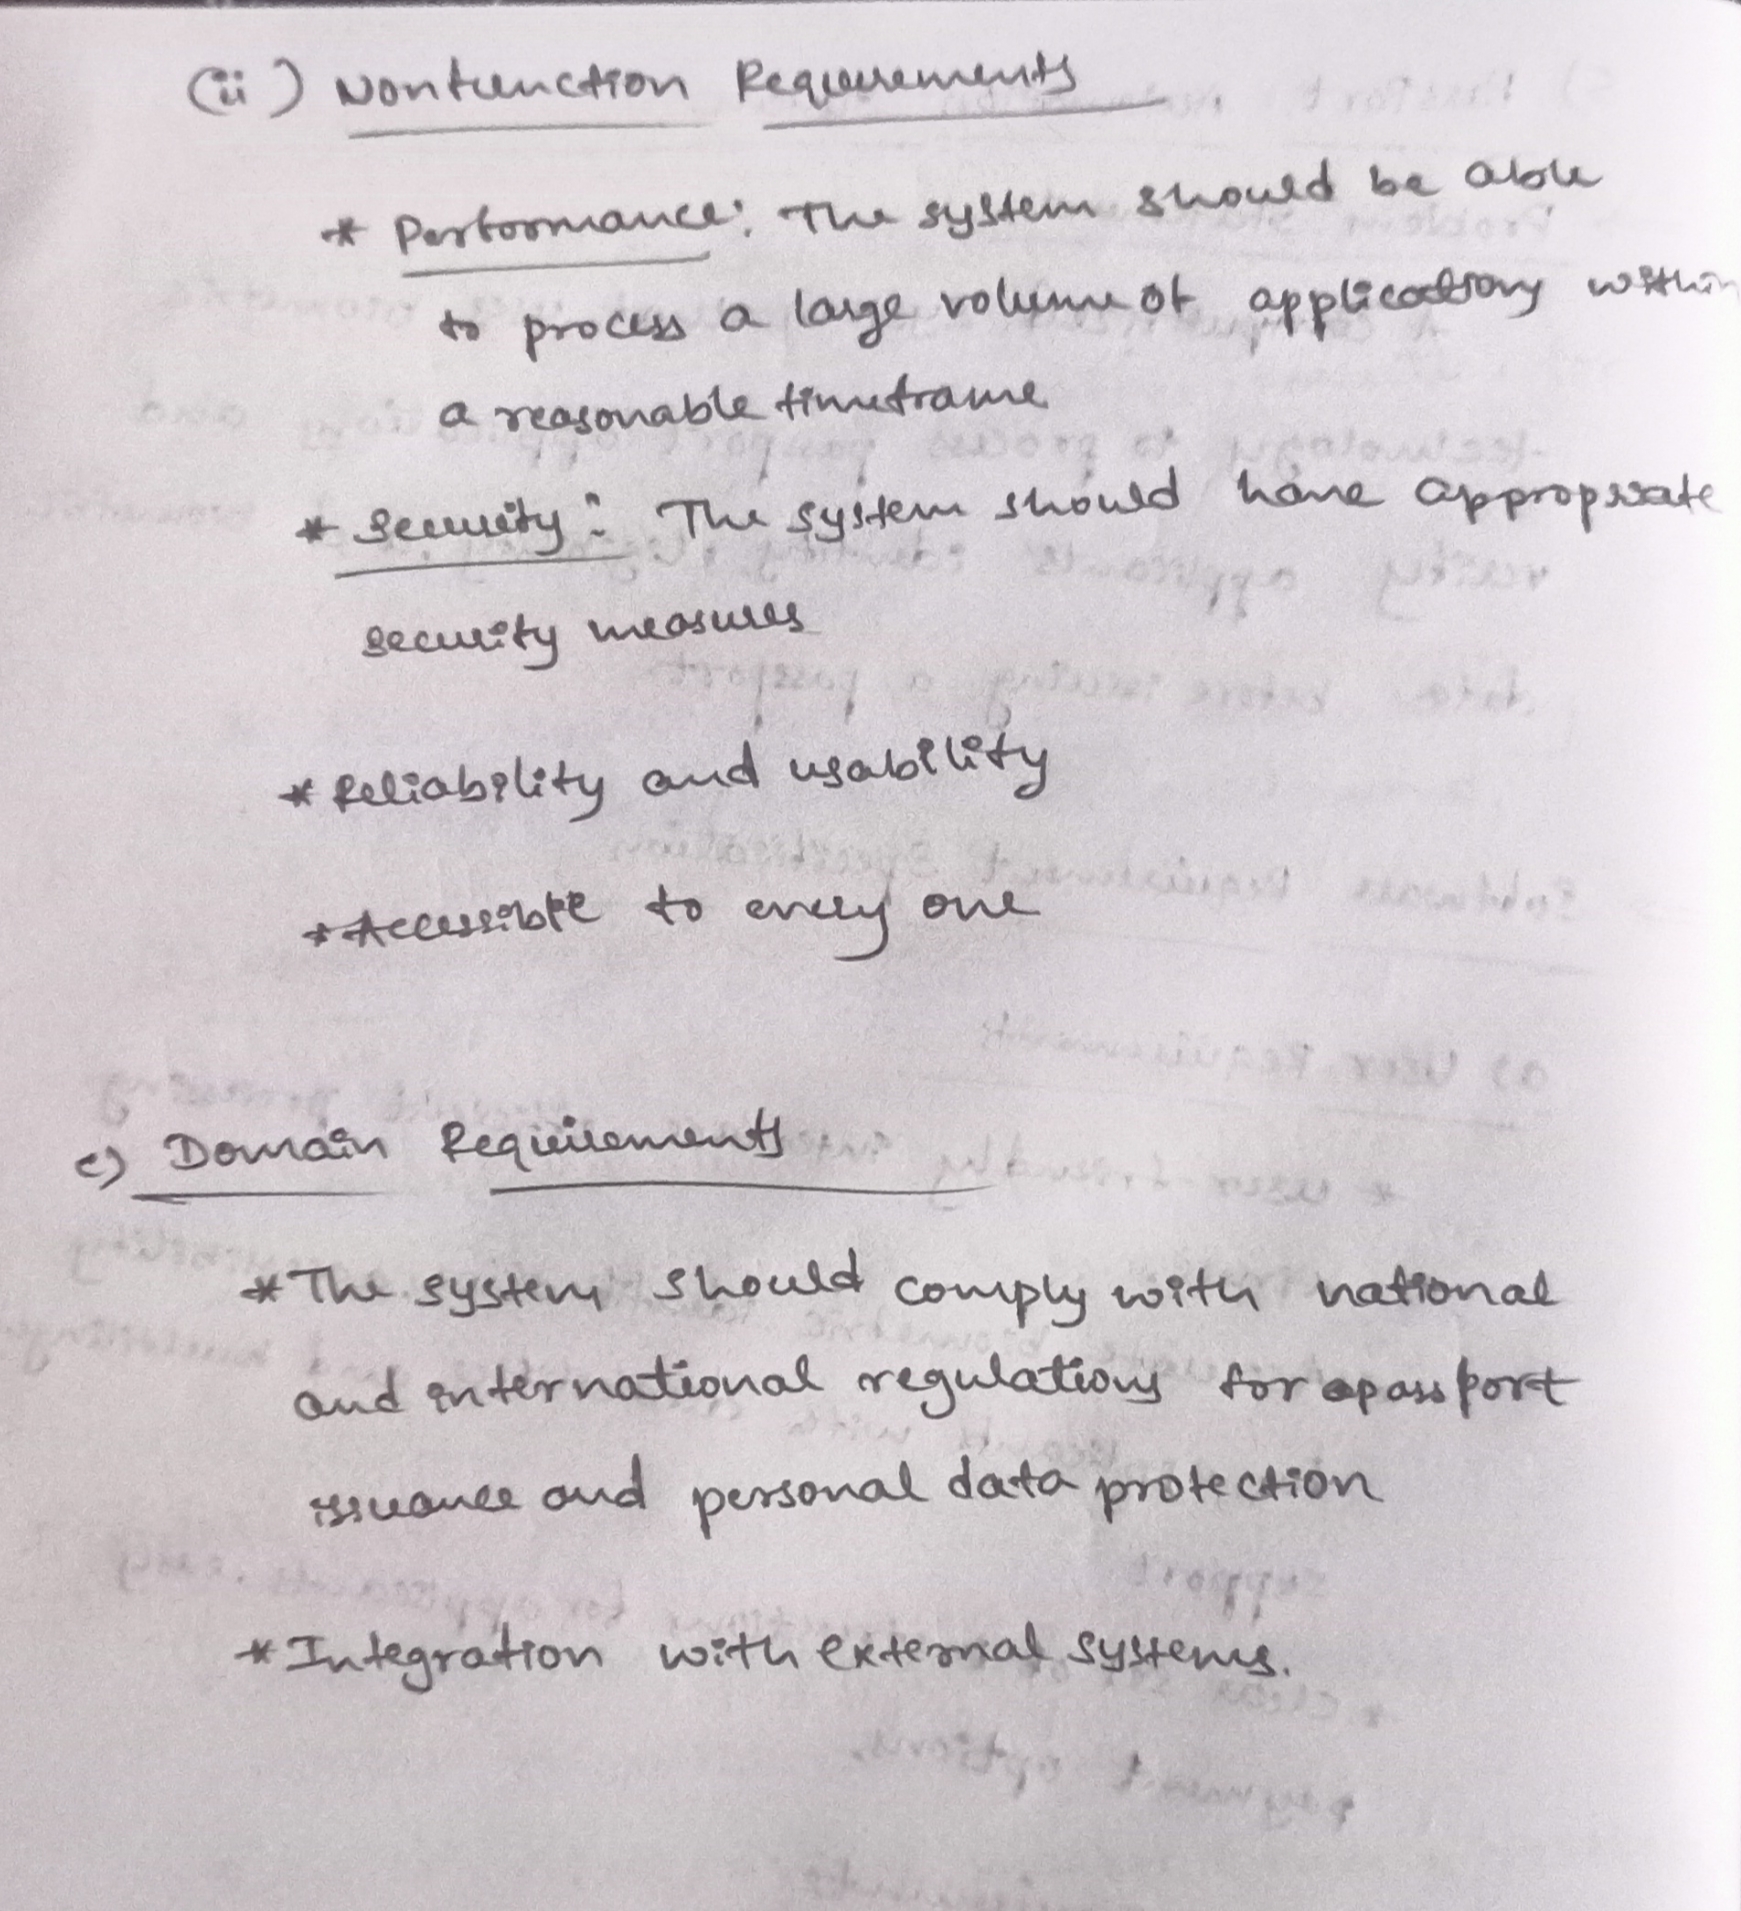 (ii) Nonfunction Requirements
* Performance: The system should be able
to process a large volume of applications within
a reasonable timeframe
* Security: The system should have appropriate
security measures
* Reliability and usability
* Accessible to every one
c) Domain Requirements
* The system should comply with national
and international regulations for passport
issuance and personal data protection
* Integration with external systems.